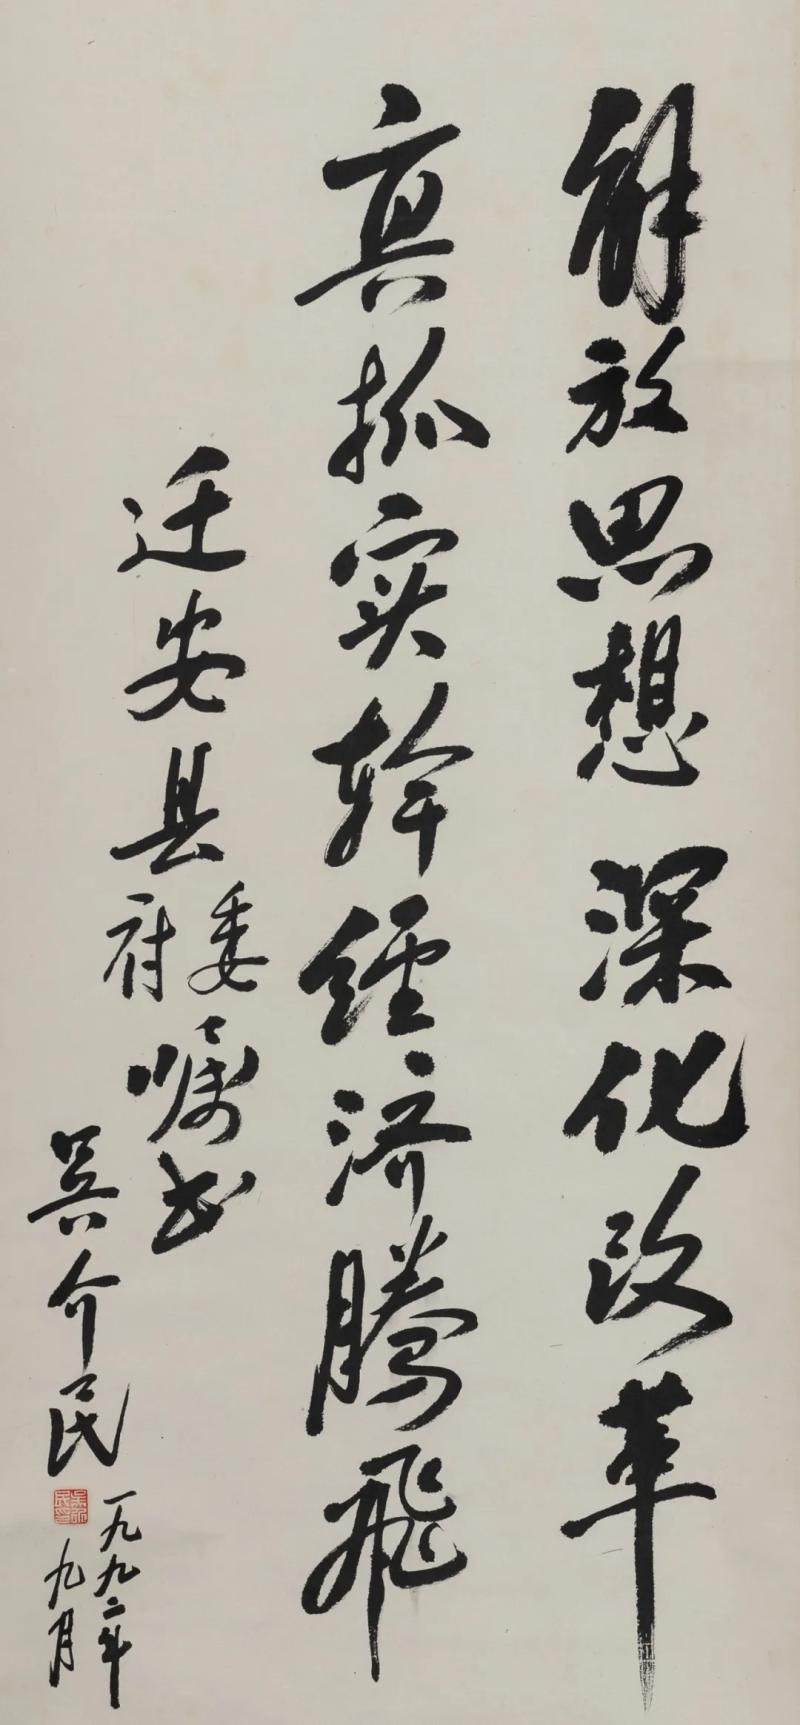 解放思想深化改革
真抓实幹经济腾飞
迁安县委府嘱书
吴介民
一九九二年
九月